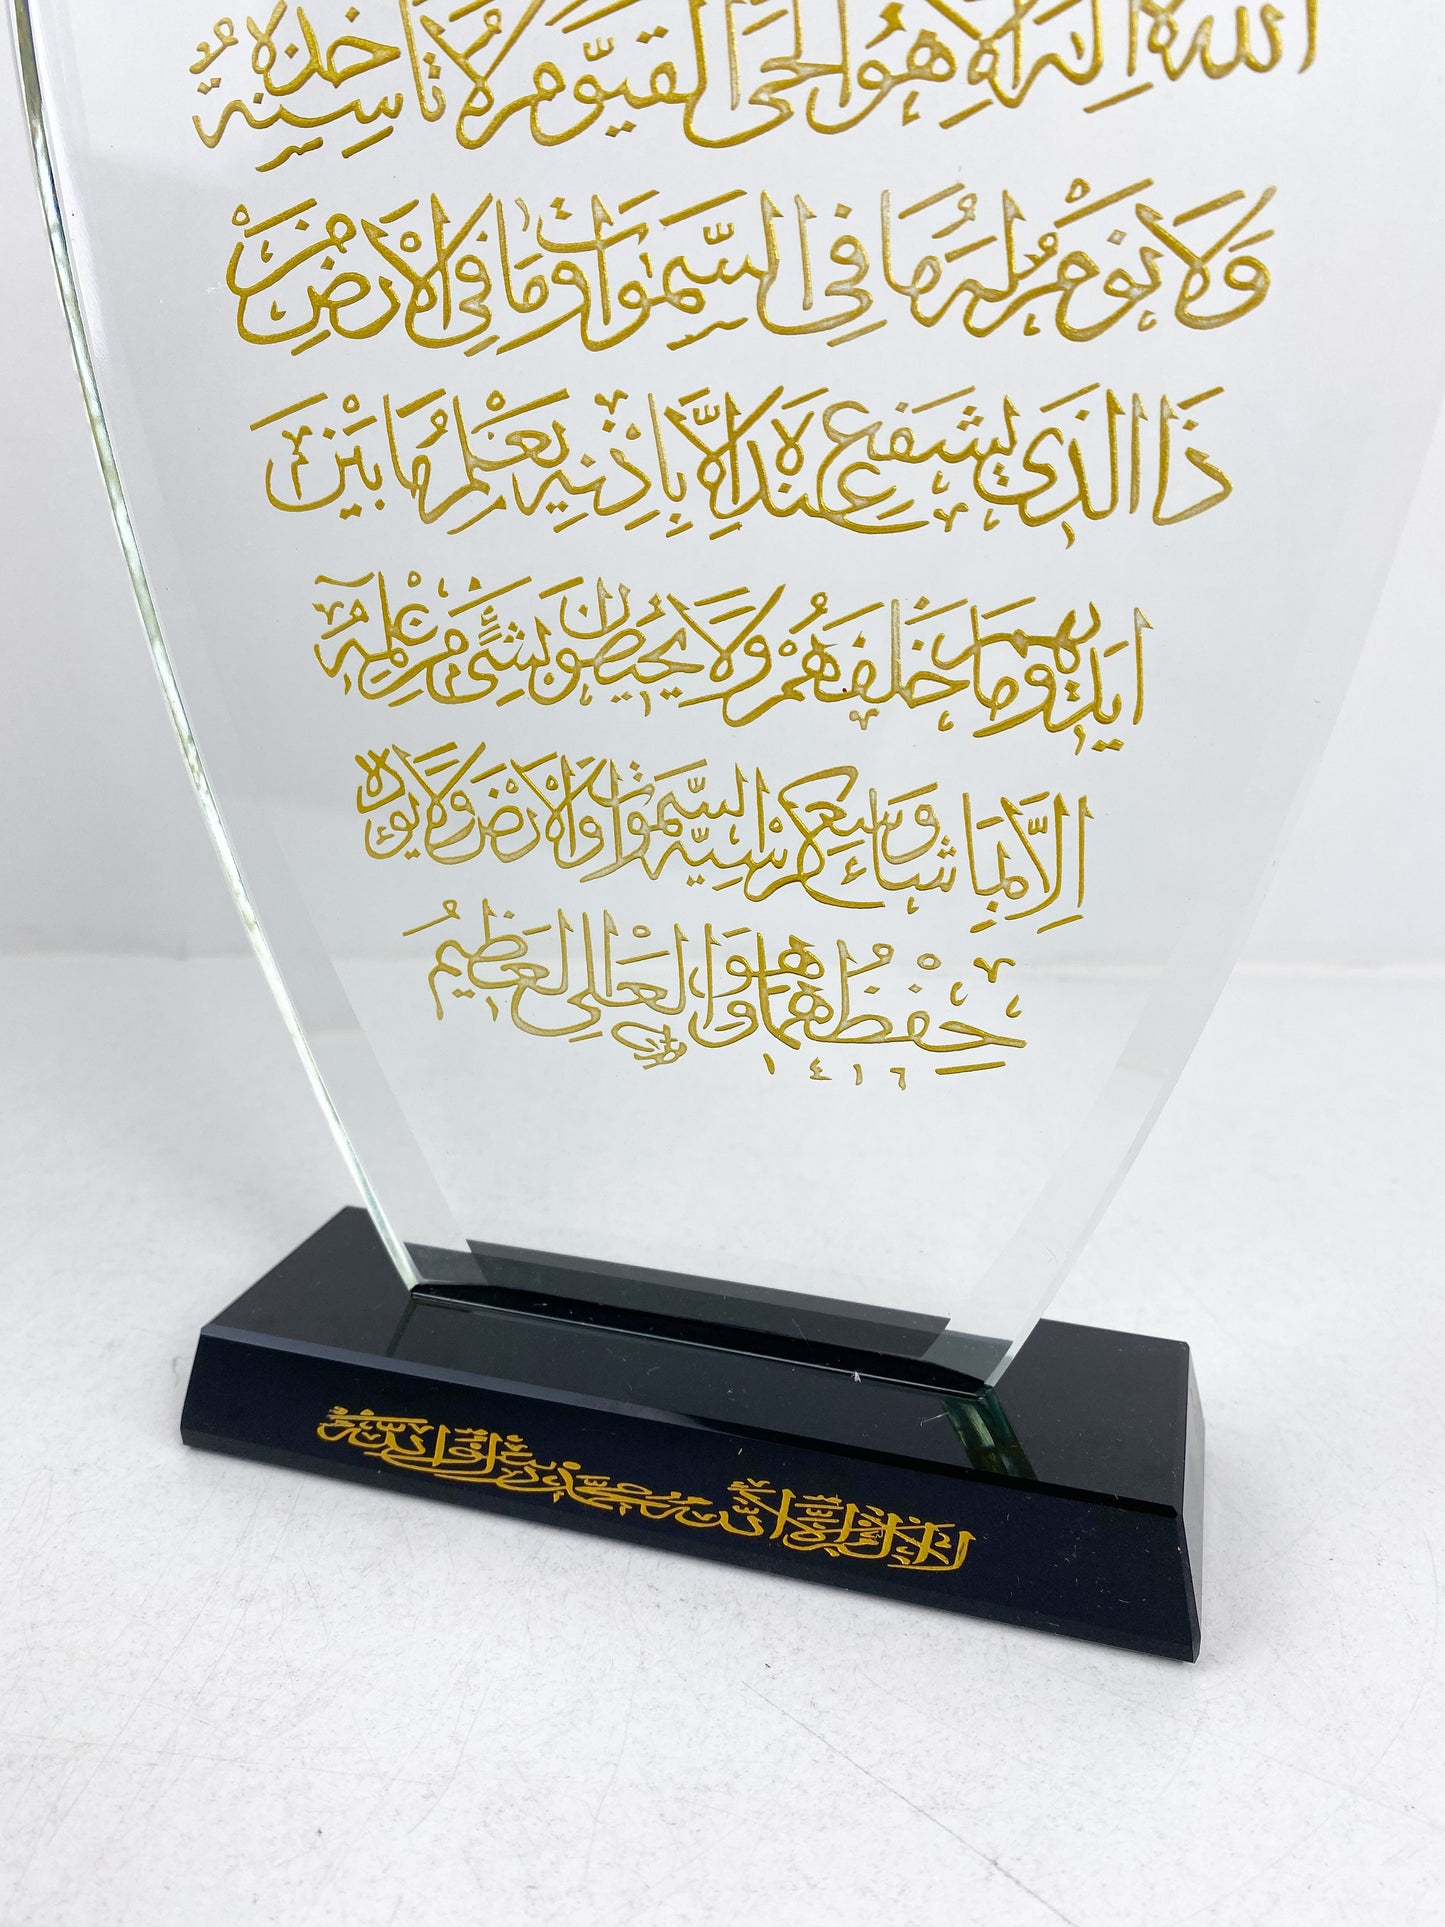 الله لا إله إلا هو الحي القيوم لا تأخذه سنة
ولا نوم له ما في السموات وما في الأرض من
ذا الذي يشفع عنده إلا بإذنه يعلم ما بين
أيديهم وما خلفهم ولا يحيطون بشيء من علمه
إلا بما شاء وسع كرسيه السموات والأرض ولا يؤده
حفظهما وهو العلي العظيم
١٤١٦
لا إله إلا الله محمد رسول الله